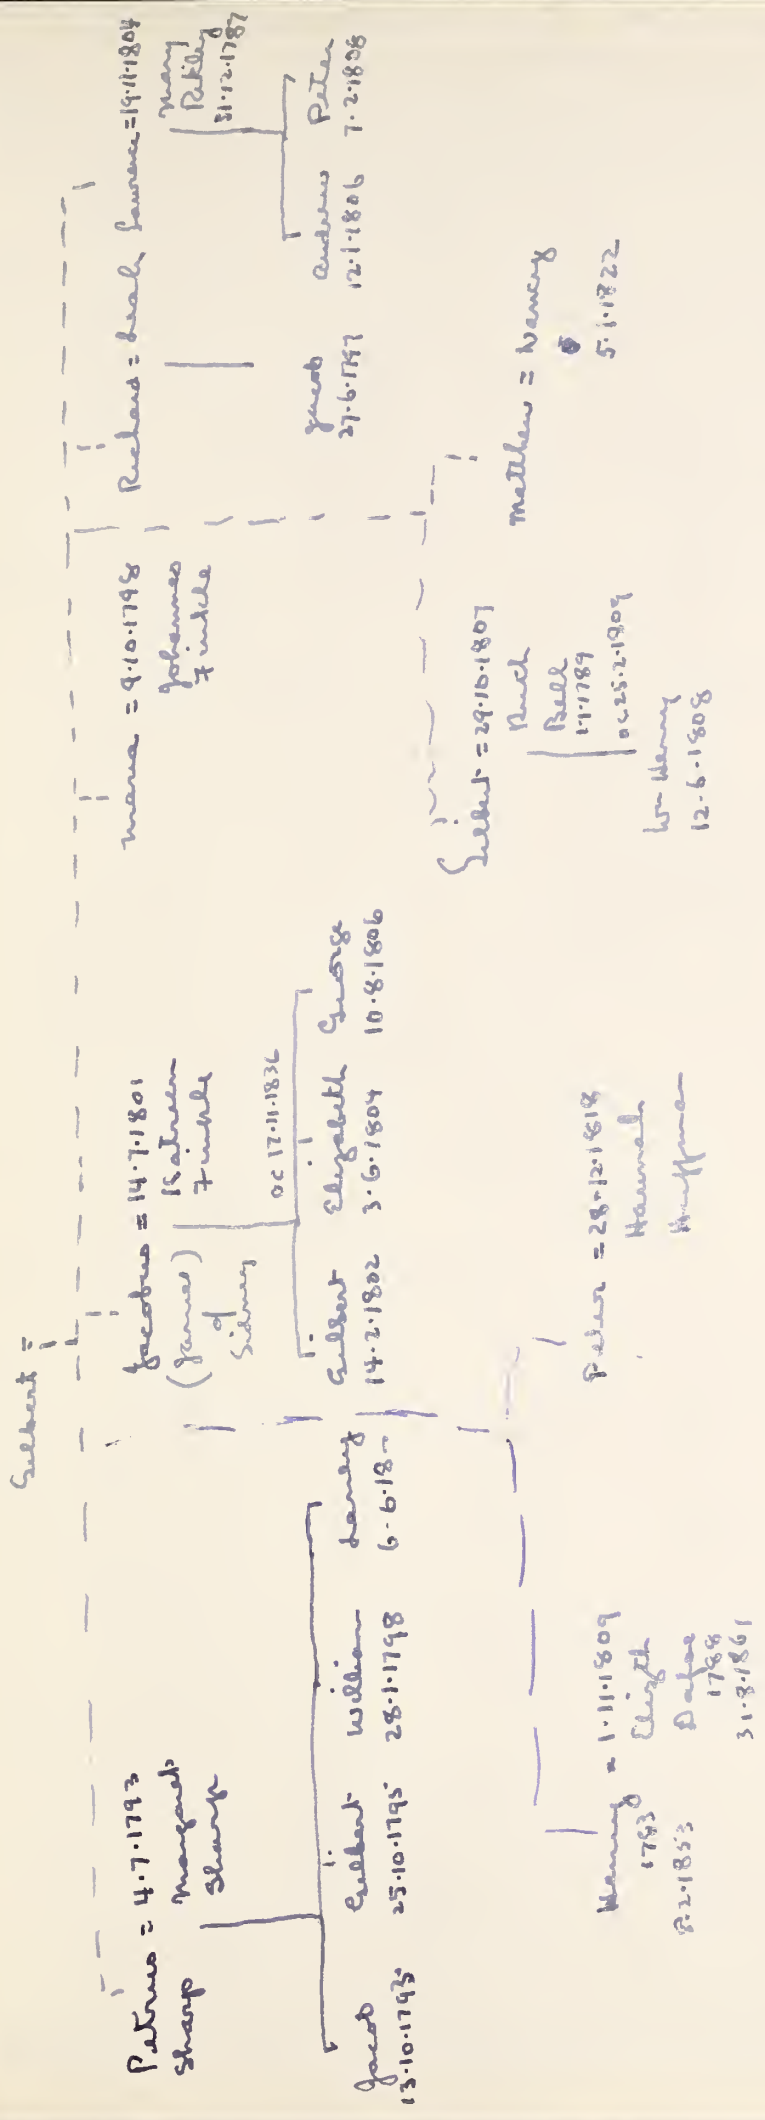 Gilbert =
Petrus = 4.7.1793
Sharp Margaret
Sharp
Jacob
13.10.1793
Gilbert
25.10.1795
William
28.1.1798
6-6.18-
Jacobus = 14.7.1801
(James) Katreen
of Finkle
Sidney
OC 17.11.1836
Gilbert
14.2.1802
Elizabeth
3.6.1804
George
10.8.1806
Maria = 9.10.1798
Johannes
Finkle
Richard = Leah Lawrence = 19.11.1804
Mary
31.12.1787
Jacob
27.6.1797
Andrew
12.1.1806
Peter
7.2.1808
Henry = 1.11.1809
1783 Elizth
8.2.1853 Dafoe
1788
31.8.1861
Peter = 28.12.1818
Hannah
Huffman
Gilbert = 29.10.1807
Ruth
Bell
1.1.1789
OC 25.2.1809
Wm Henry
12.6.1808
Matthew = Nancy
5.1.1822